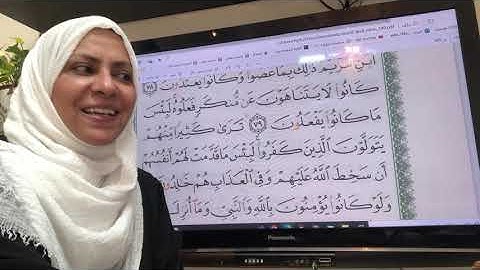 ابن مريم ذلك بما عصوا وكانوا يعتدون ٧٨
كانوا لا يتناهون عن منكر فعلوه لبئس
ما كانوا يفعلون ٧٩ ترى كثيرا منهم
يتولون الذين كفروا لبئس ما قدمت لهم أنفسهم
أن سخط الله عليهم وفي العذاب هم خالدون
ولو كانوا يؤمنون بالله والنبي وما أنزل
Panasonic